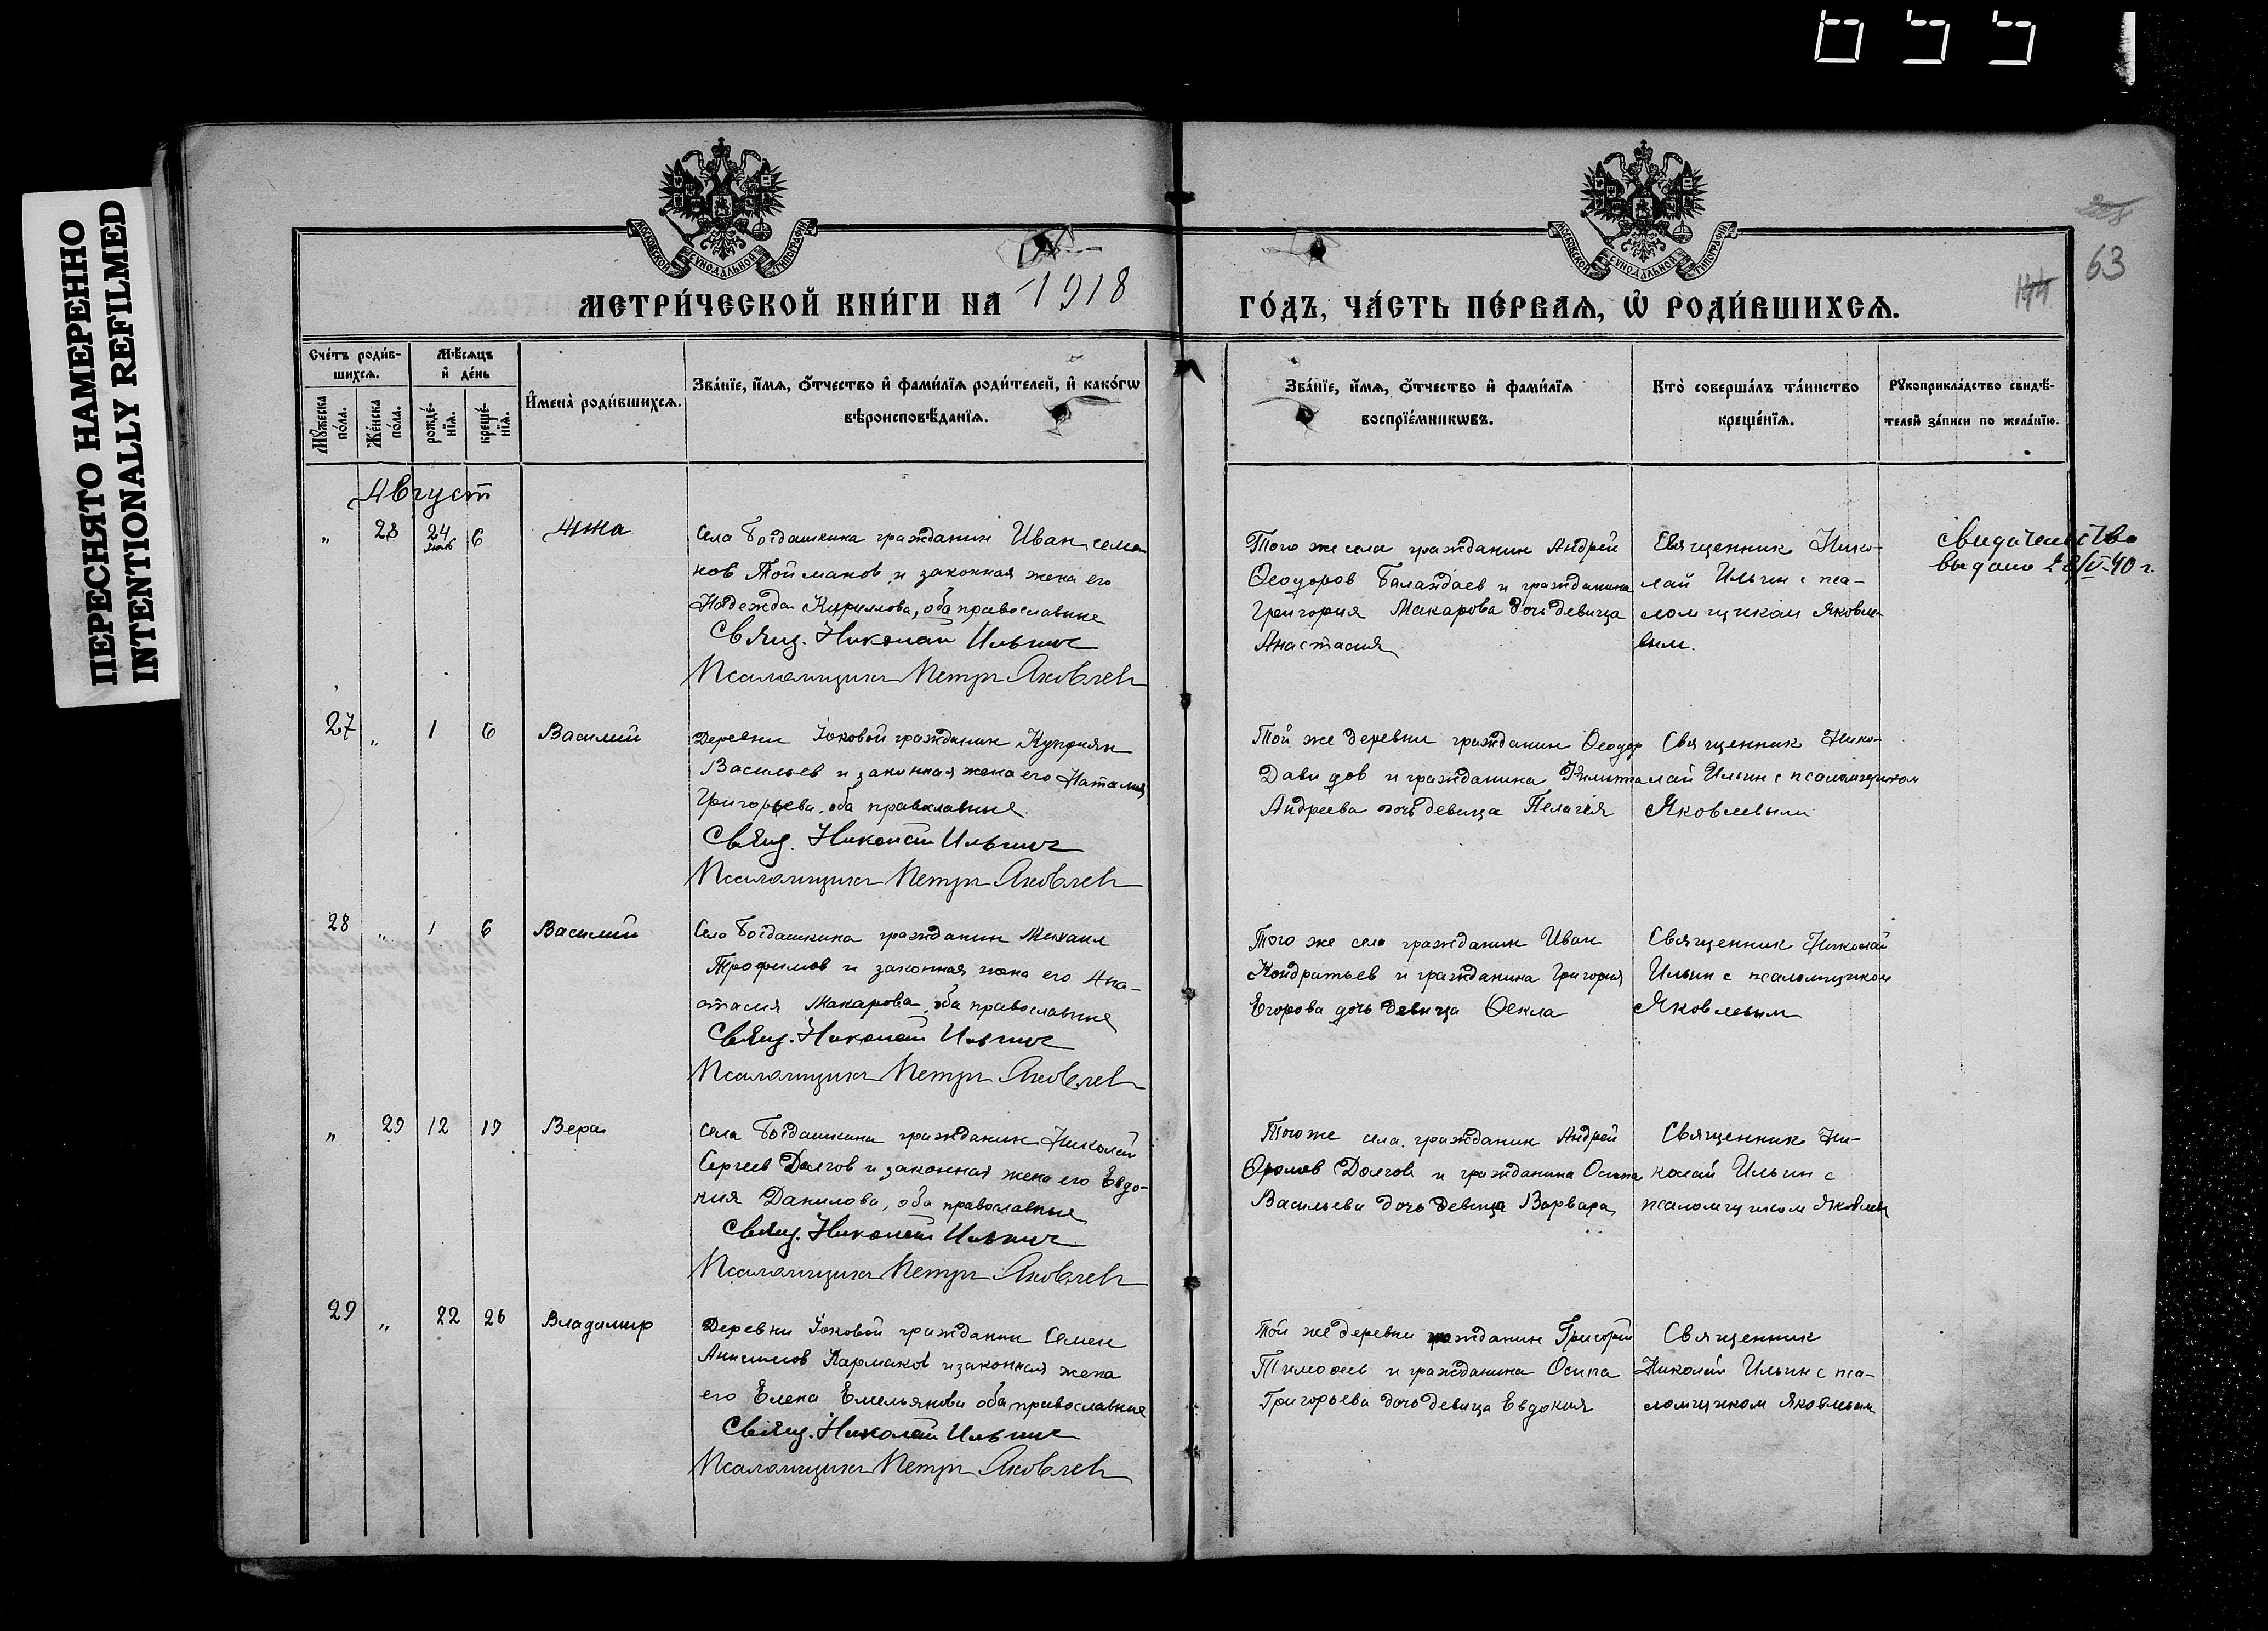 ПЕРЕСНЯТО НАМЕРЕННО
INTENTIONALLY REFILMED
МОСКОВСКОЙ СѴНОДАЛЬНОЙ ТИПОГРАФІИ
МОСКОВСКОЙ СѴНОДАЛЬНОЙ ТИПОГРАФІИ
63
МЕТРИ́ЧЕСКОЙ КНИ́ГИ НА 1918
ГО́ДЪ, ЧА́СТЬ ПЕ́РВАѦ, Ѡ҆ РОДИ́ВШИХСѦ.
Сче́тъ роди́в-
шихсѧ.
Мꙋ́жеска по́ла.
Же́нска по́ла.
Мѣ́сѧцъ
и҆ де́нь
рожде́-
нїѧ.
креще́-
нїѧ.
И҆мена̀ роди́вшихсѧ.
Зва́нїе, и҆́мѧ, ѻ҆́тчество и҆ фами́лїѧ роди́телей, и҆ како́гѡ
вѣроисповѣ́данїѧ.
Зва́нїе, и҆́мѧ, ѻ҆́тчество и҆ фами́лїѧ
воспрїе́мникѡвъ.
Кто̀ соверша́лъ та́инство
креще́нїѧ.
Рꙋкоприкла́дство свидѣ́-
телей за́писи по жела́нїю.
Август
„ 28 24 июль 6 Анна
Села Богдашкина гражданин Иван Семе
нов Тойманов и законная жена его
Надежда Кириллова, оба православные
Свящ. Николай Ильин
Псаломщик Петр Яковлев
Того же села гражданин Андрей
Ѳеодоров Баландаев и гражданина
Григория Макарова дочь девица
Анастасия
Священник Нико-
лай Ильин с пса-
ломщиком Яковле-
вым.
Свидетельство
выдано 28/IV-40 г.
27 „ 1 6 Василий
Деревни Уоковой гражданин Куприян
Васильев и законная жена его Наталия
Григорьева, оба православные
Свящ. Николай Ильин
Псаломщик Петр Яковлев
Той же деревни гражданин Ѳеодор
Давидов и гражданина Филиппа
Андреева дочь девица Пелагея
Священник Нико-
лай Ильин с псаломщиком
Яковлевым
28 „ 1 6 Василий
Села Богдашкина гражданин Михаил
Трофимов и законная жена его Ана-
стасия Макарова, оба православные
Свящ. Николай Ильин
Псаломщик Петр Яковлев
Того же села гражданин Иван
Кондратьев и гражданина Григория
Егорова дочь девица Ѳекла
Священник Николай
Ильин с псаломщиком
Яковлевым
„ 29 12 19 Вера
Села Богдашкина гражданин Николай
Сергеев Долгов и законная жена его Евдо-
кия Данилова, оба православные
Свящ. Николай Ильин
Псаломщик Петр Яковлев
Того же села гражданин Андрей
Фролов Долгов и гражданина Осипа
Васильева дочь девица Варвара
Священник Ни-
колай Ильин с
псаломщиком Яковлевым
29 „ 22 26 Владимир
Деревни Уоковой гражданин Семен
Анисимов Кармаков и законная жена
его Елена Емельянова оба православные
Свящ. Николай Ильин
Псаломщик Петр Яковлев
Той же деревни гражданин Григорий
Тимофеев и гражданина Осипа
Григорьева дочь девица Евдокия
Священник
Николай Ильин с пса-
ломщиком Яковлевым